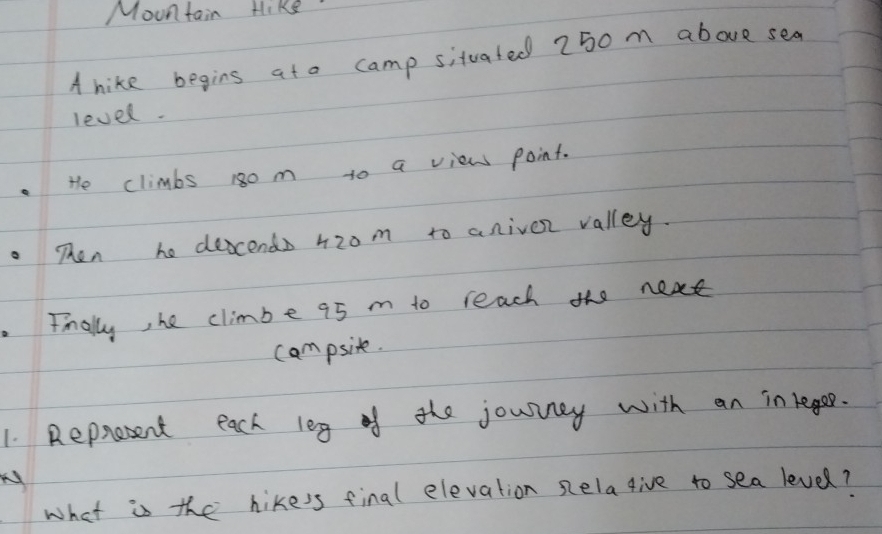 Mountain Hike.
A hike begins at a camp situated 250 m above sea
level.
• He climbs 180 m to a view point.
• Then he descends 420 m to a river valley.
• Finally, he climbe 95 m to reach the next
campsite.
1. Represent each leg of the journey with an integer.
What is the hikess final elevation relative to sea level?